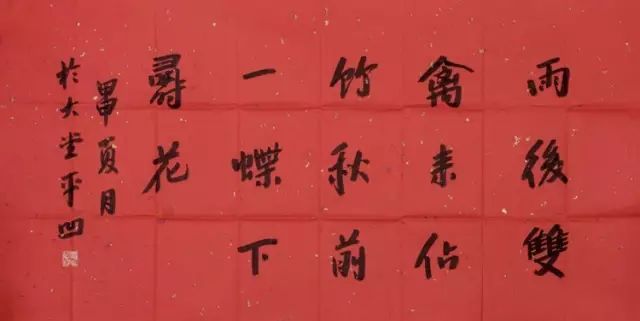 雨後雙
禽来佔
竹秋前
一蝶下
尋花
甲申夏月
於大堂平凹